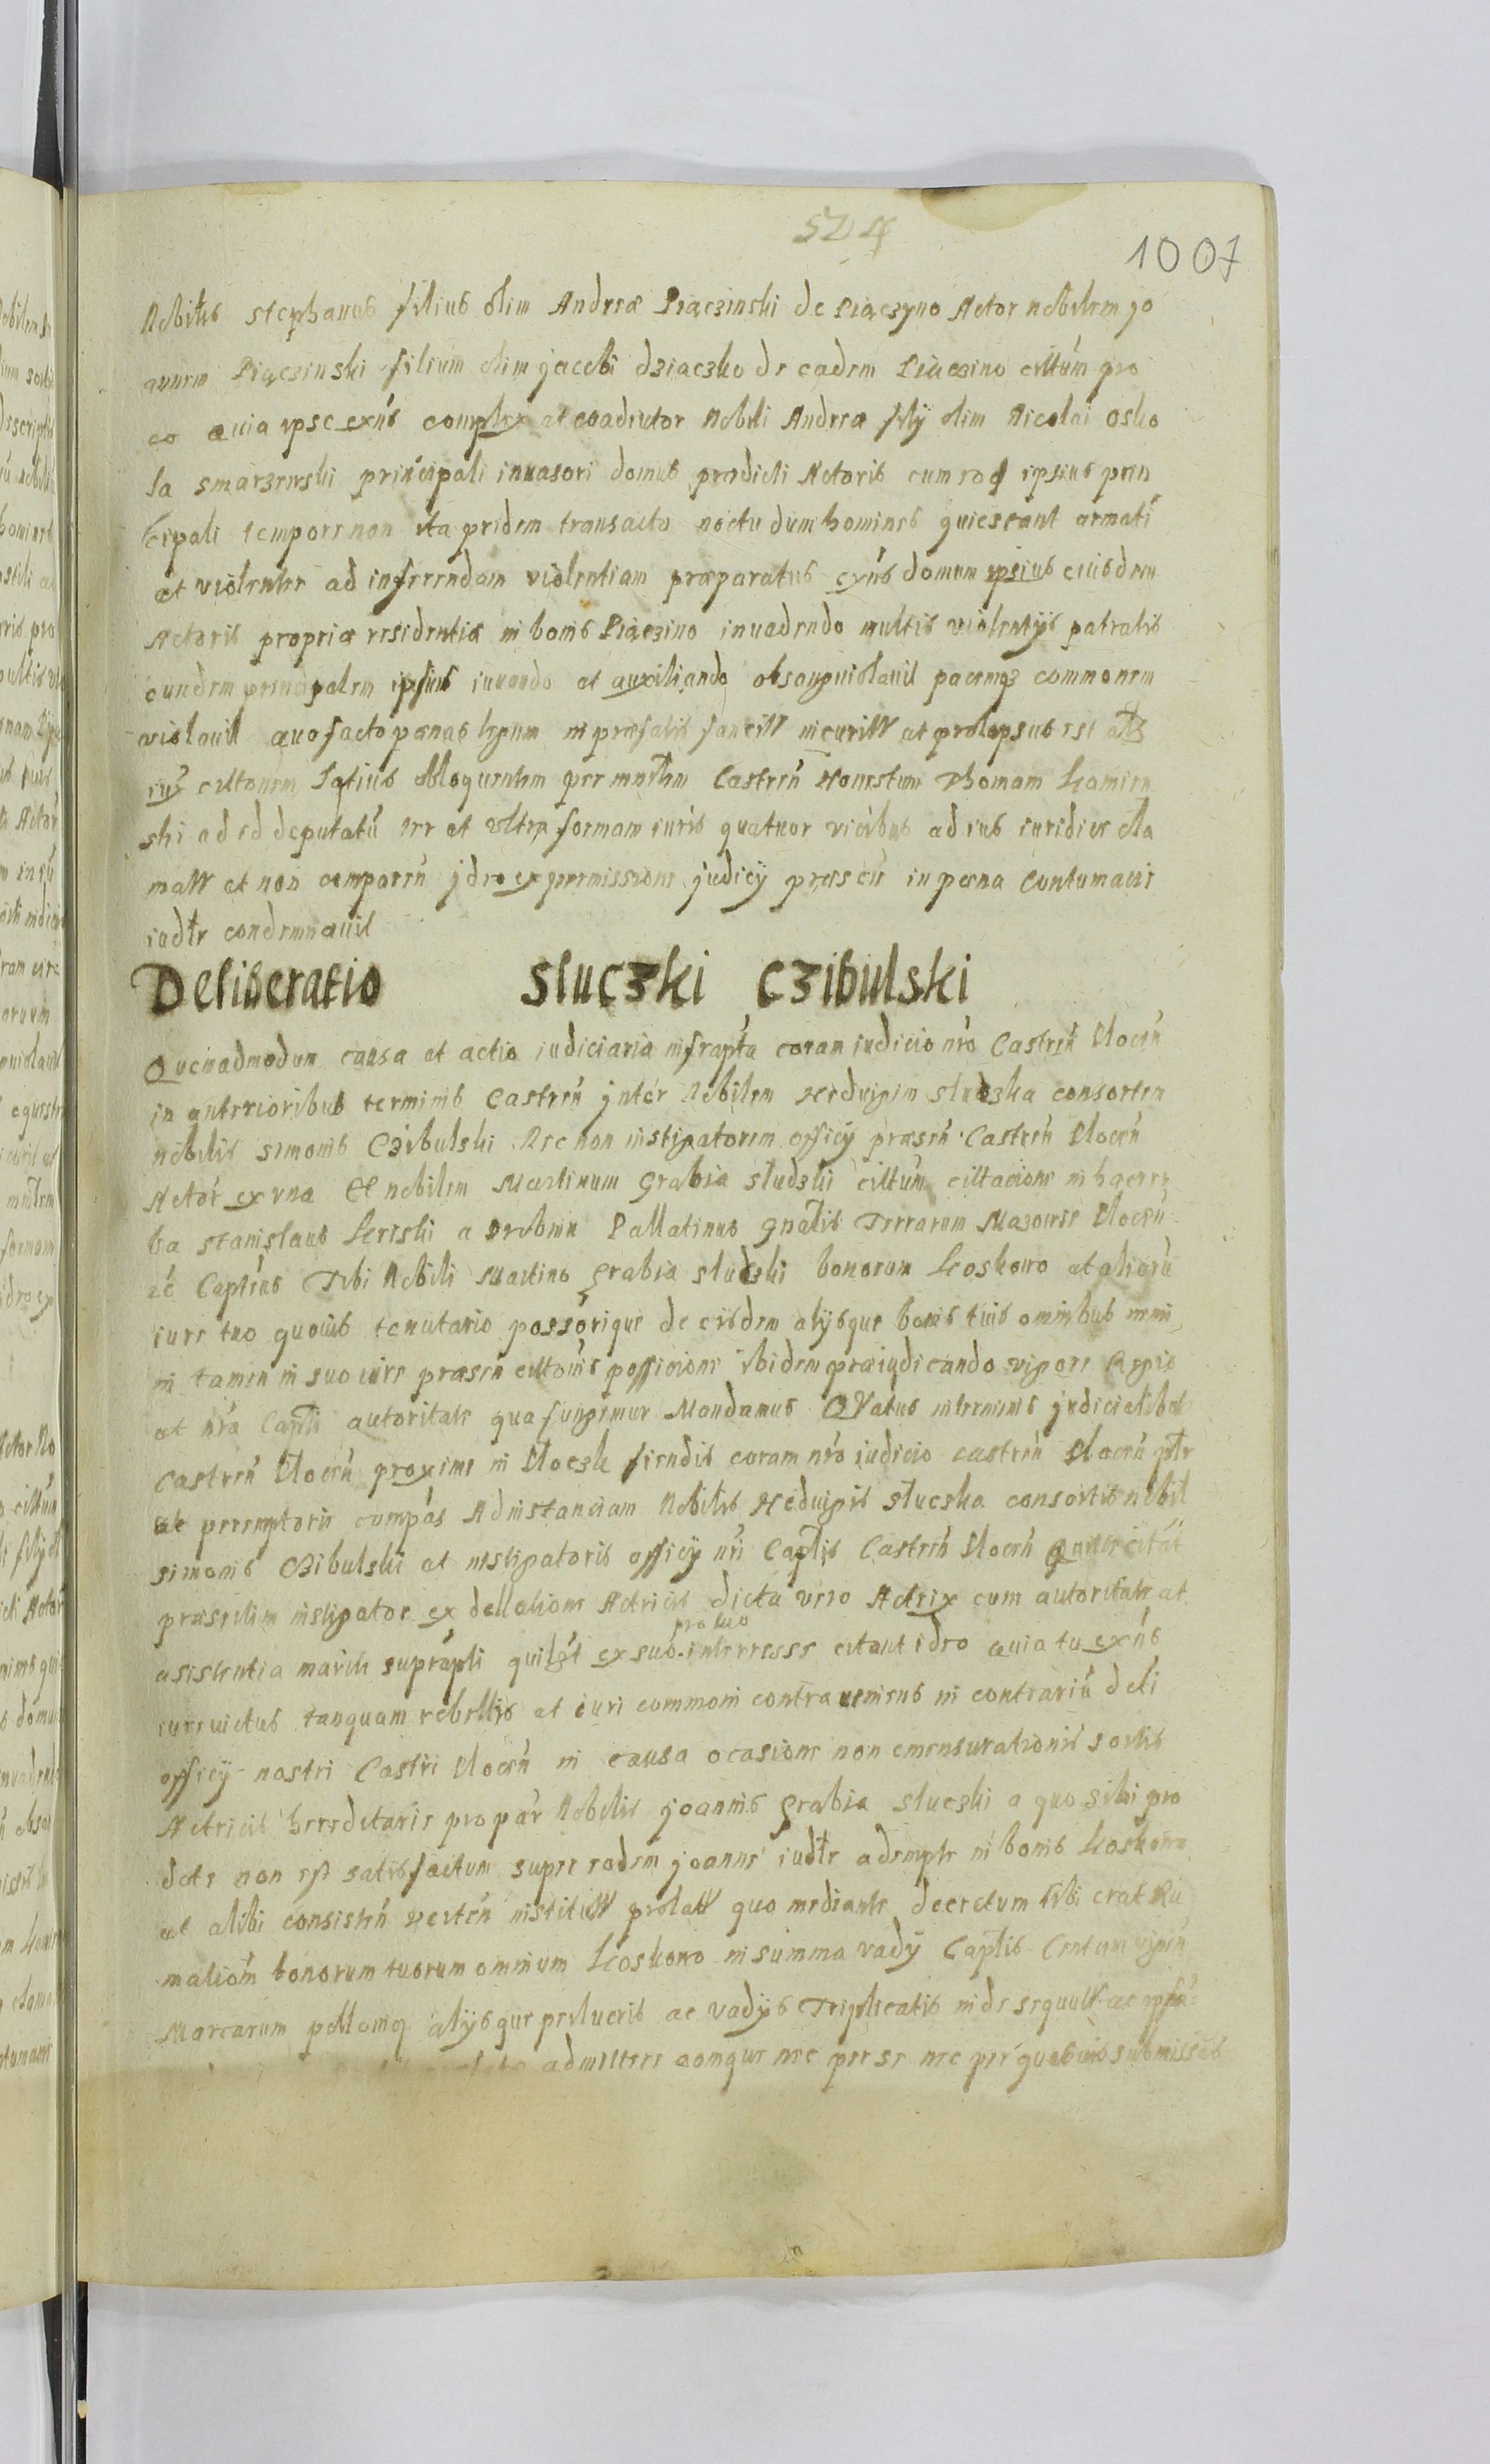 524
1007
Nobilis Stephanus filius olim Andreæ Piączinski de Piączyno Actor nobilem Jo
annem Piączinski filium olim Jacobi dziaczko de eadem Piączino cittum pro
eo quia ipse exns complex et coadiutor Nobili Andreæ filÿ olim Nicolai
principali inuasori domus prædicti Actoris cum eodem ipsius prin
cipali tempore non ita pridem transacto noctu dum homines quiescant armati
et violenter ad inferendam violentiam præparatus exns domum ipsius eiusdem
Actoris propriæ residentiæ in bonis Piączino inuadendo multis violentÿs patratis
eundem principalem ipsius iuuando et auxiliando obsanguiolauit pacemq commonem
violauit quo facto pænas legum in præfatis incuritt et prolapsus est
cittonem latius obloquentem per mntlem Castren Honestum Thomam Kamien
ski ad id deputatu ter et vltra formam iuris quatuor vicibus ad ius iuridice cla
matt et non comparen Jdeo ex permissione judicÿ præsens in pæna contumaciæ
iudtr condemnauit
Deliberatio Sluczki Czibulski
Quemadmodum causa et actio iudiciaria infrapta coram iudicio nro Castren Plocen
in anterioribus terminis Castren Jnter Nobilem Heduigim sluczka consortem
nobilis Simonis Czibulski Nec non instigatorem officÿ præsen Castren Plocen
Actor ex vna Et nobilem Martinum Grabia sludzki cittum cittacione in hæc ver
ba Stanislaus Kriski a Drobnin Pallatinus gnalis Terrarum Mazouiæ Plocen
Captneus Tibi Nobili Martino Grabia sludzki bonorum Koskowo et alioru
iure tuo quouis tenutario possorique de eisdem alÿsque bonis tuis omnibus nemi
ni tamen in suo iure præsen cittonis positione ibidem præiudicando vigore Regia
et nra Captli autoritate qua fungimur Mandamus QVatus in terminis judicialibus
Castren Plocen proxime in Plocsk fiendis coram nro iudicio castren Plocen
ac peremptorie compas Ad instanciam Nobilis Heduigis sluczka consortis nobil
Simonis Czibulski et instigatoris officÿ nri Captlis Castren Plocen
præsertim instigator ex dellatione Actricis dicta vero Actrix cum autoritate et
asistentia mariti suprapti quilzt ex suo interresse pro tuo citant ideo quia tu exns
iure victus tanquam rebellis et iuri commoni contraueniens in contrariu deti
officÿ nostri Castri Plocen in causa ocasione non emensurationis sortis
Actricis hereditariæ pro par Nobilis Joannis Grabia sluczki a quo sibi pro
dote non est satisfactum super eodem Joanne iudtr adempte in bonis Koskowo
et alibi consisten institutt prolatt quo mediante decretum tibi erat Ru
mationem bonorum tuorum omnium Koskowo in summa vadÿ Captlis Centum
Marcarum alÿsque ac vadÿs Triplicatis inde sequutt ac
admittere eamque nec per se nec per quasuis submissas